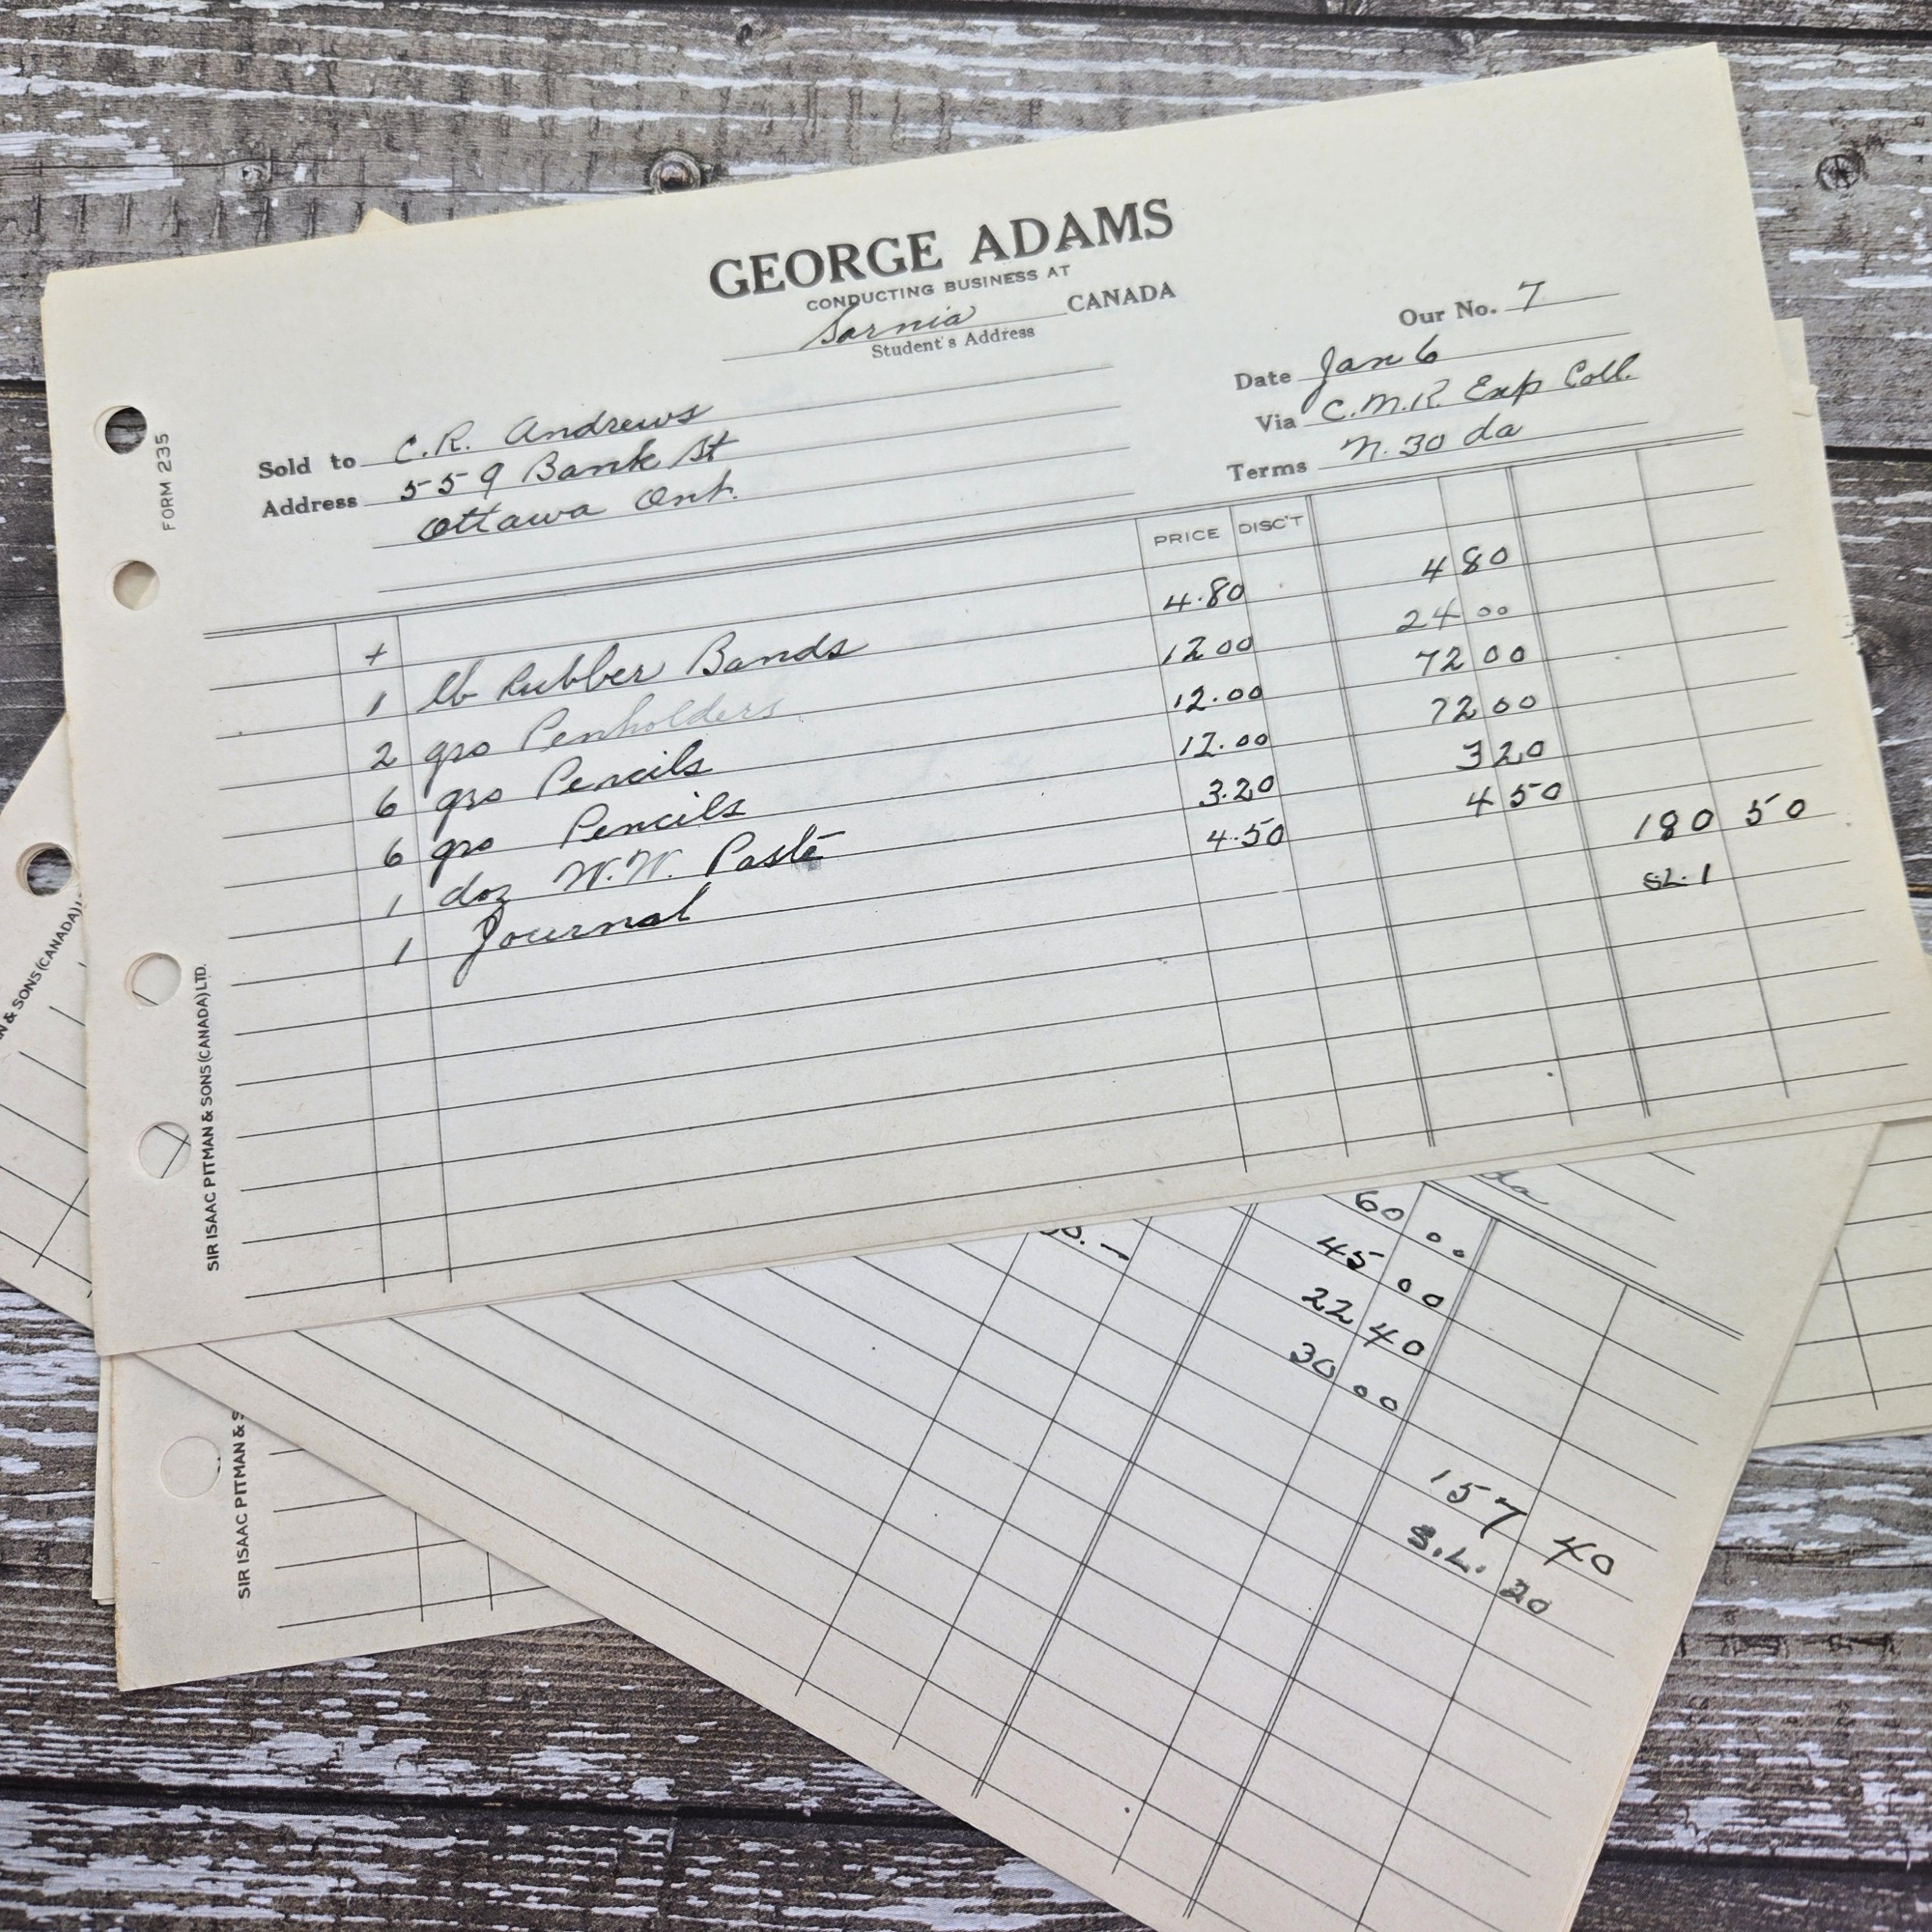 GEORGE ADAMS
CONDUCTING BUSINESS AT
Sarnia CANADA
Student's Address
Our No. 7
Date Jan 6
Via C.M.R. Exp Coll.
Terms N. 30 da
Sold to C.R. Andrews
Address 559 Bank St
Ottawa Ont.
FORM 235
PRICE DISC'T
1 lb Rubber Bands 4.80 4 80
2 gro Penholders 12 00 24 00
6 gro Pencils 12.00 72 00
6 gro Pencils 12.00 72 00
1 doz W.W. Paste 3.20 3 20
1 Journal 4.50 4 50
180 50
SL. 1
SIR ISAAC PITMAN & SONS (CANADA) LTD.
N & SONS (CANADA)
SIR ISAAC PITMAN & S
da
60 00
45 00
22 40
30 00
157 40
S.L. 20